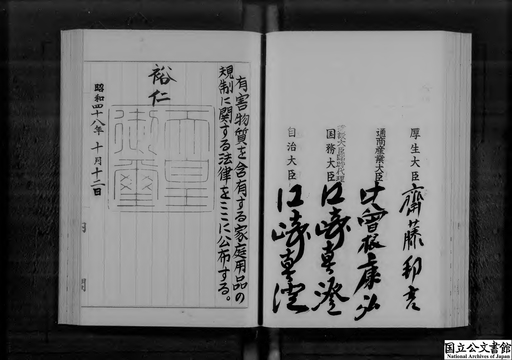 厚生大臣 齋藤邦吉
通商産業大臣 中曽根康弘
建設大臣臨時代理
国務大臣 江崎真澄
自治大臣 江崎真澄
有害物質を含有する家庭用品の
規制に関する法律をここに公布する。
裕仁
天皇
御璽
昭和四十八年 十月十二日
国立公文書館
National Archives of Japan